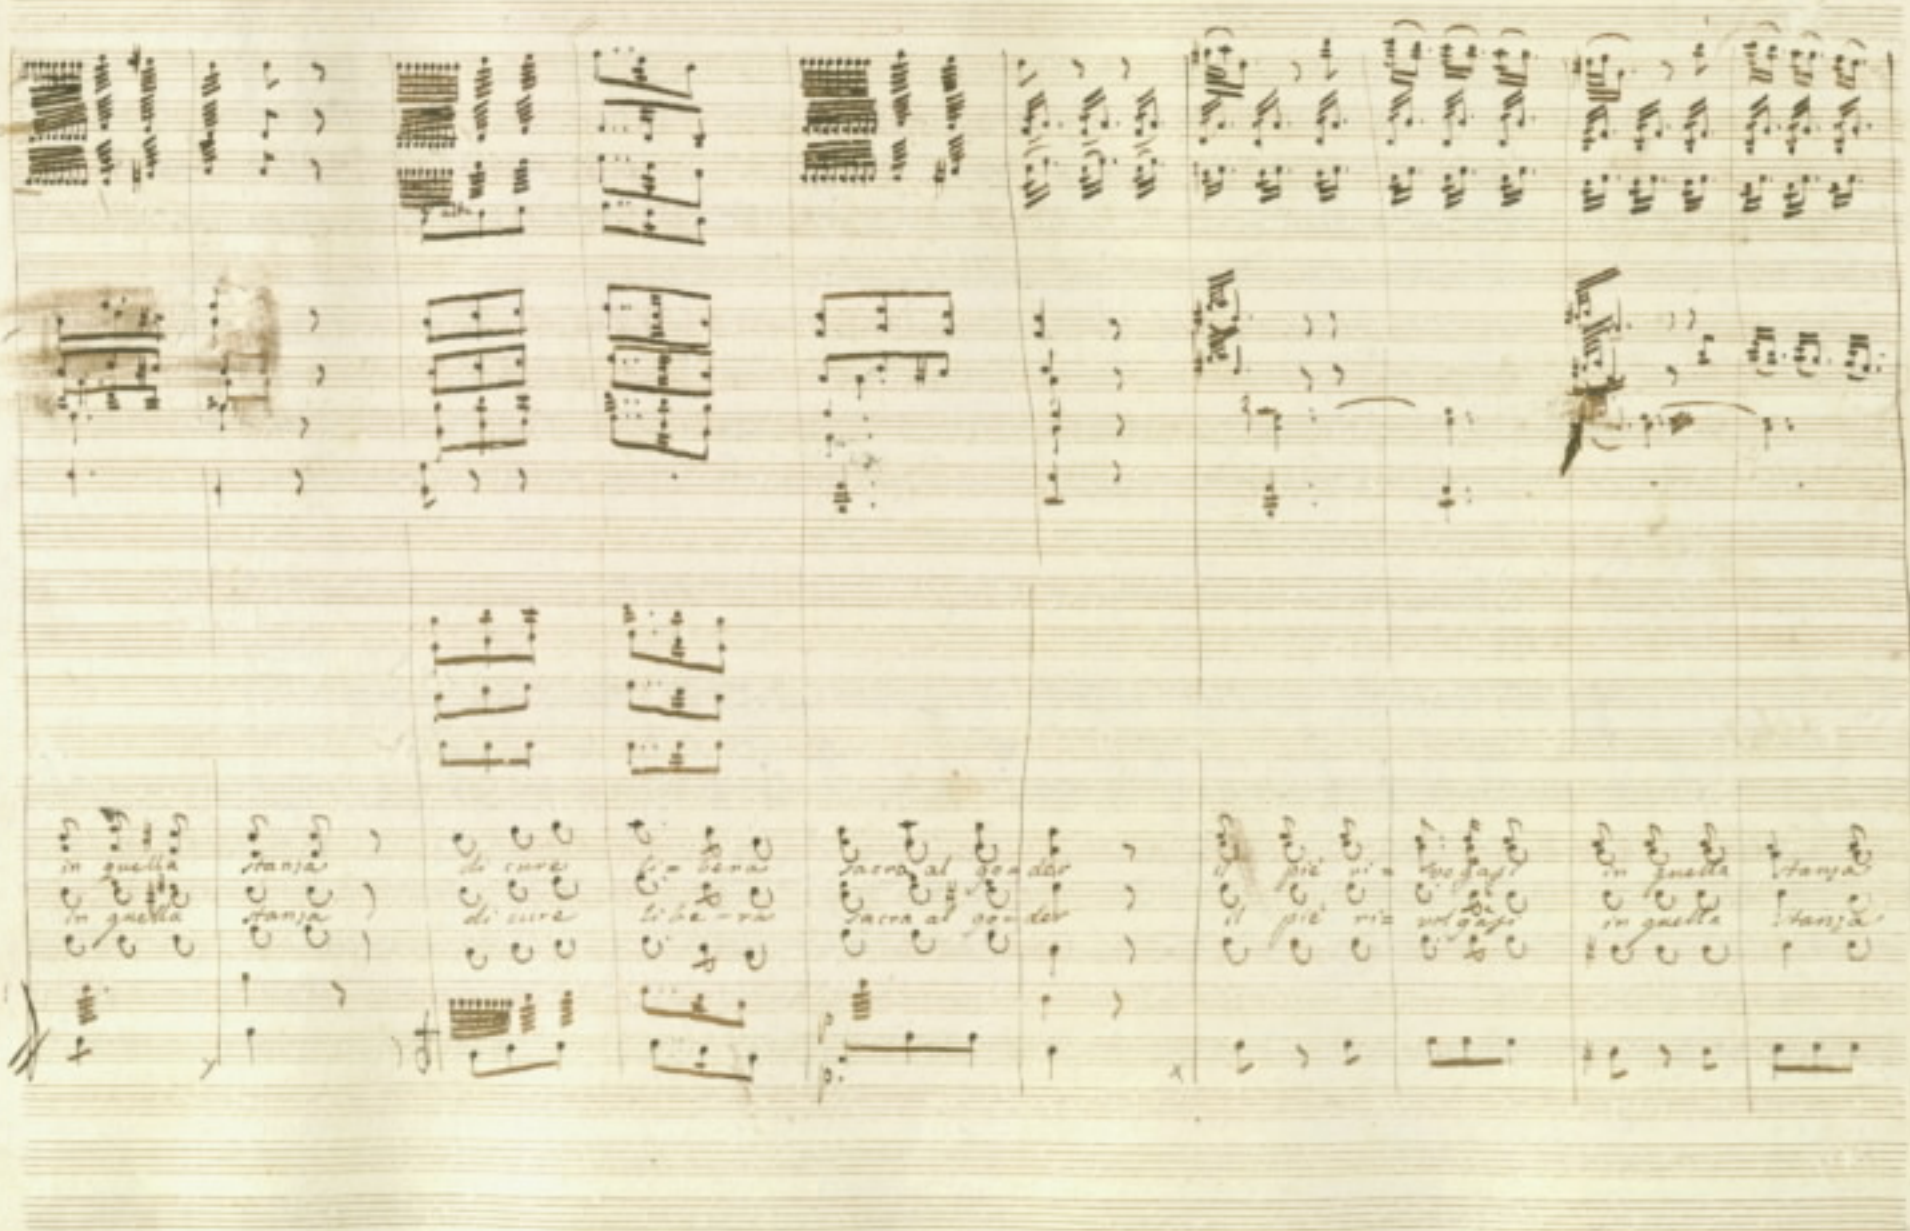 in quella stanza di cure li= bera sacra al gouder il piè ri= volgasi in quella stanza
in quella stanza di cure libe-ra sacra al gouder il piè ri= volgasi in quella stanza